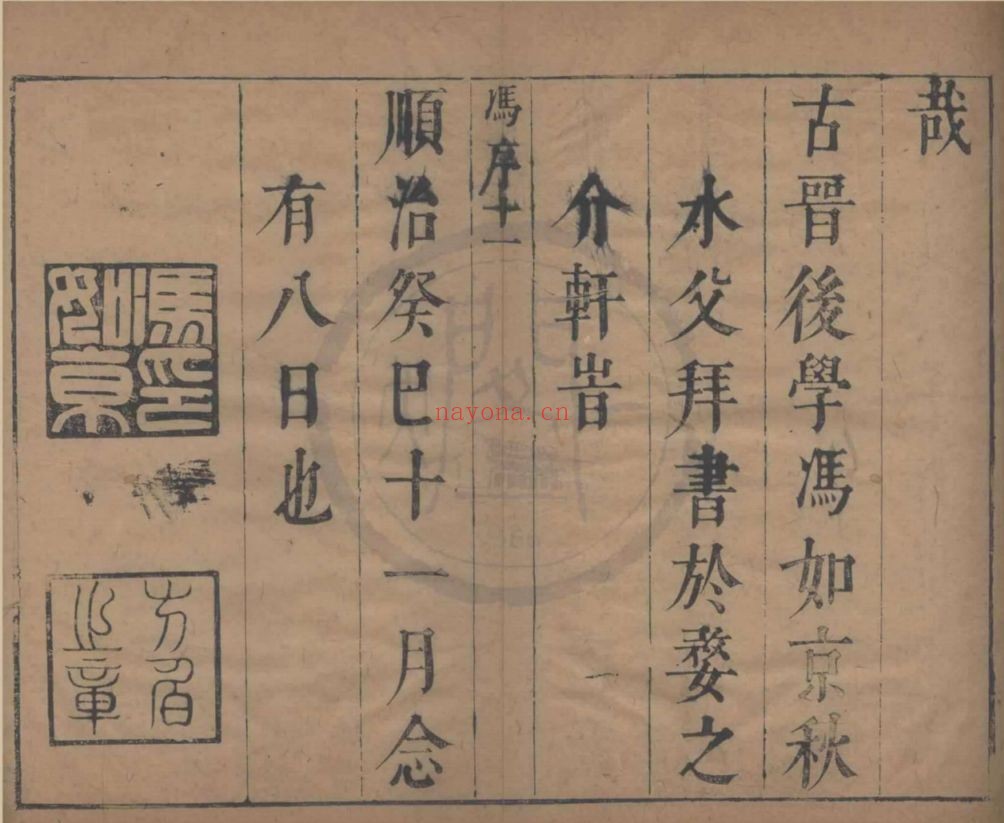 哉
古晉後學馮如京秋
水父拜書於婺之
介軒旹
馮序十一
順治癸巳十一月念
有八日也
馮印如京
之章
nayona.cn